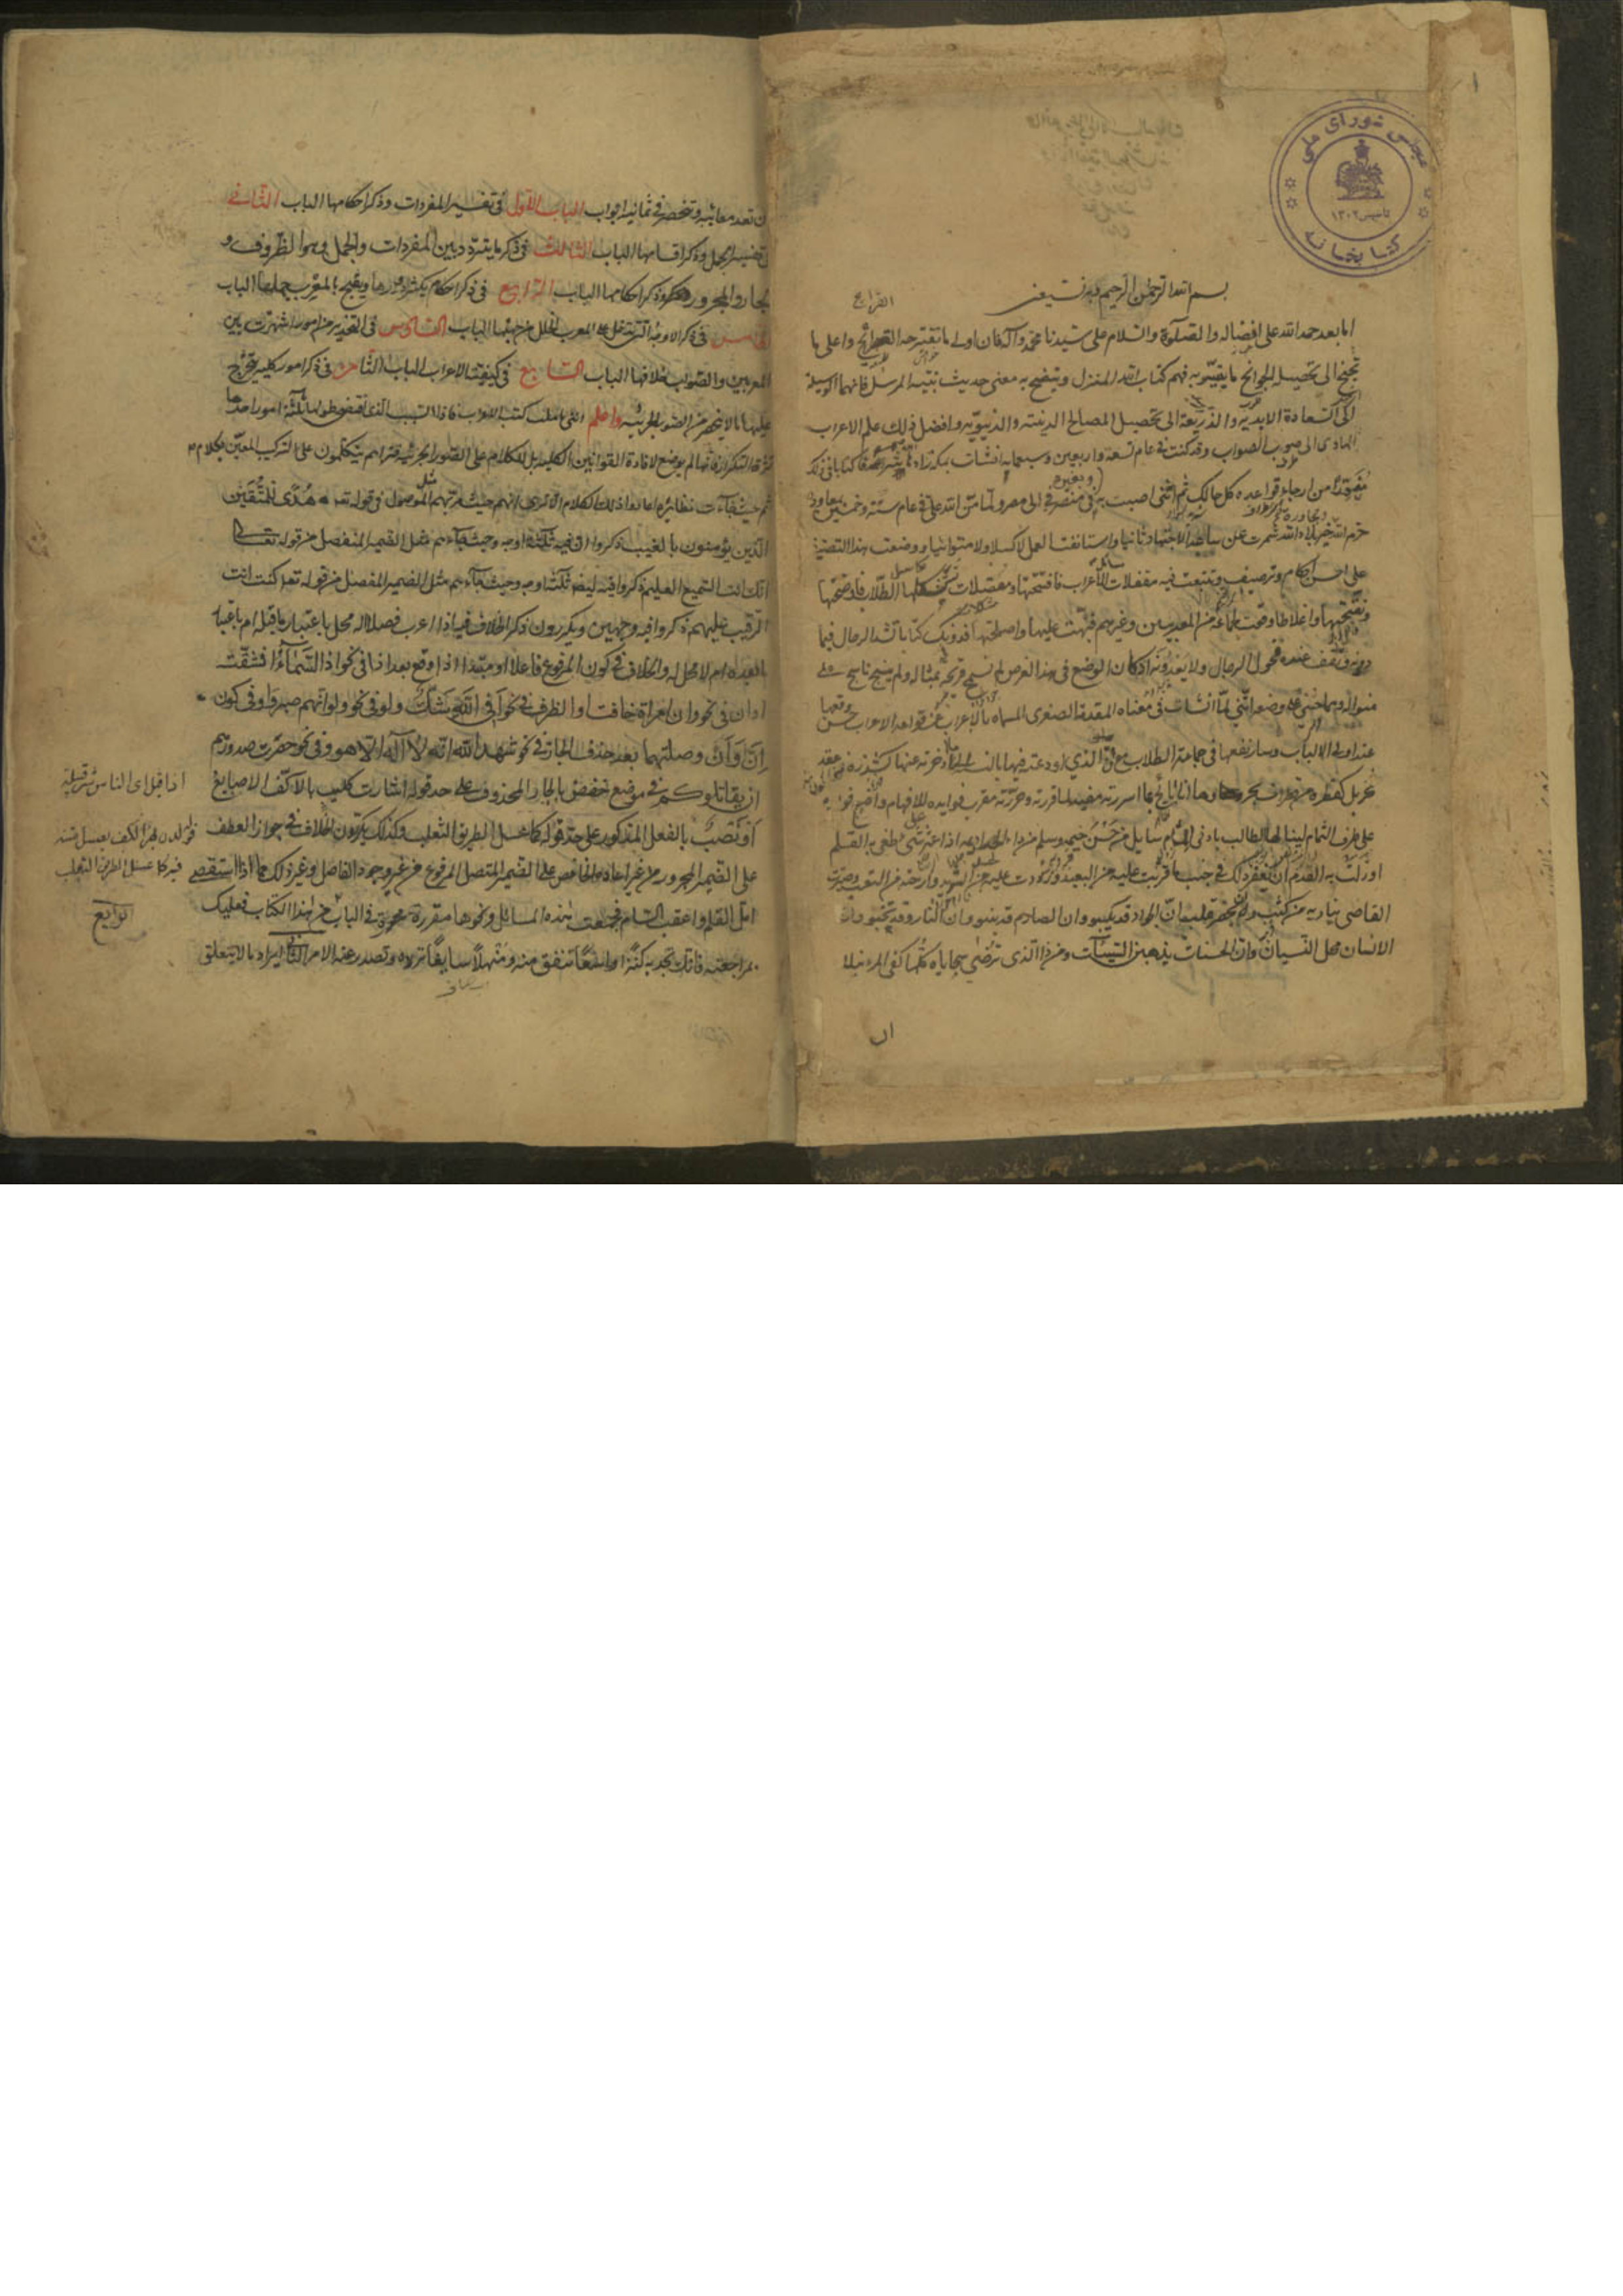 مجلس شورای ملی
تأسیس ۱۳۰۲
کتابخانه
۱
بسم الله الرحمن الرحیم وبه نستعین
القرایح
اما بعد حمد الله علی افضاله والصلوة والسلام علی سیدنا محمد وآله فان اولی ما تقترحه القرایح واعلی ما
تجنح الی تحصیله الجوانح ما یتیسر به فهم کتاب الله المنزل ویتضح به معنی حدیث نبیه المرسل فانهما الوسیلة
الی السعادة الابدیة والذریعة الی تحصیل المصالح الدینیة والدنیویة وافضل ذلک علم الاعراب
الهادی الی صوب الصواب وقد کنت فی عام تسعة واربعین وسبعمایة انشات بمکة زادها الله شرفا کتابا فی ذلک
من ارجاء قواعده کل حالک ثم اننی اصبت به وبغیره فی منصرفی الی مصر ولما من الله علی فی عام ستة وخمسین بمعاودة
حرم الله خیر بلاد الله شمرت عن ساعد الاجتهاد ثانیا واستانفت العمل لا کسلا ولا متوانیا ووضعت هذا التصنیف
علی احسن احکام وترصیف وتتبعت فیه مقفلات مسائل الاعراب فافتتحتها ومعضلات یستشکلها الطلاب فاوضحتها
ونقحتها واغلاطا وقعت لجماعة من المعربین وغیرهم فنبهت علیها واصلحتها فدونک کتابا تشد الرحال فیما
دونه وتقف عنده فحول الرجال ولا یعدونه اذ کان الوضع فی هذا الغرض لم تسمح قریحة بمثاله ولم ینسج ناسج علی
منواله ومما حثنی علی وضعه اننی لما انشات فی معناه المقدمة الصغری المسماة بالاعراب عن قواعد الاعراب حسن وقعها
عند اولی الالباب وسار نفعها فی جماعة الطلاب مع ان الذی اودعته فیها بالنسبة الی ما ادخرته عنها کشذرة من عقد
نحر بل کقطرة من قطرات بحر وها انا بائح بما اسررته مفید لما قررته وحررته مقرب فوایده للافهام واضع فرایده
علی طرف الثمام لینالها الطالب بادنی المام سایل من حسن خیمه وسلم من داء الحسد ادیمه اذا عثر علی شئ طغی به القلم
او زلت به القدم ان یغتفر ذلک فی جنب ما قربت علیه من البعید ورددت علیه من الشرید وارحته من التعب وصیرت
القاصی ینادیه من کثب وان یحضر قلبه ان الجواد قد یکبو وان الصارم قد ینبو وان النار قد تخبو وان
الانسان محل النسیان وان الحسنات یذهبن السیئات ومن ذا الذی ترضی سجایاه کلها کفی المرء نبلا
ان
ان تعد معائبه وتنحصر فی ثمانیة ابواب الباب الاول فی تفسیر المفردات وذکر احکامها الباب الثانی
فی تفسیر الجمل وذکر اقسامها الباب الثالث فی ذکر ما یتردد بین المفردات والجمل وهو الظروف و
الجار والمجرور وذکر احکامها الباب الرابع فی ذکر احکام یکثر دورها ویقبح بالمعرب جهلها الباب
الخامس فی ذکر الاوجه التی یدخل علی المعرب الخلل من جهتها الباب السادس فی التحذیر من امور اشتهرت بین
المعربین والصواب خلافها الباب السابع فی کیفیة الاعراب الباب الثامن فی ذکر امور کلیة یتخرج
علیها ما لا ینحصر من الصور الجزئیة واعلم اننی تاملت کتب الاعراب فاذا السبب الذی اقتضی طولها ثلثة امور احدها
کثرة التکرار فانها لم یوضع لافادة القوانین الکلیة بل للکلام علی الصور الجزئیة فتراهم یتکلمون علی الترکیب المعین بکلام
ثم حیث جاءت نظائره اعادوا ذلک الکلام الا تری انهم حیث مر بهم مثل الموصول فی قوله تعالی هدی للمتقین
الذین یؤمنون بالغیب ذکروا ان فیه ثلثة اوجه وحیث جاءهم مثل الضمیر المنفصل من قوله تعالی
انک انت السمیع العلیم ذکروا فیه ایضا ثلثة اوجه وحیث جاءهم مثل الضمیر المنفصل من قوله تعالی کنت انت
الرقیب علیهم ذکروا فیه وجهین ویکررون ذکر الخلاف فیه اذا اعرب فصلا اله محل باعتبار ما قبله ام باعتبار
ما بعده ام لا محل له والخلاف فی کون المرفوع فاعلا او مبتدا اذا وقع بعد اذا فی نحو اذا السماء انشقت
او ان فی نحو وان امراة خافت او الظرف فی نحو افی الله شک ولو فی نحو ولو انهم صبروا وفی کون
ان وان وصلتهما بعد حذف الجار فی نحو شهد الله انه لا اله الا هو وفی نحو حصرت صدورهم
ان یقاتلوکم فی موضع خفض بالجار المحذوف علی حد قوله اشارت کلیب بالاکف الاصابع
او نصب بالفعل المذکور علی حد قوله کما عسل الطریق الثعلب وکذلک یکررون الخلاف فی جواز العطف
علی الضمیر المجرور من غیر اعادة الخافض علی الضمیر المتصل المرفوع من غیر وجود الفاصل وغیر ذلک مما اذا استقصی
امل القلم واعقب السام فجمعت هذه المسائل ونحوها مقررة محررة فی الباب الرابع من هذا الکتاب فعلیک
بمراجعته فانک تجد به کنزا واسعا تنفق منه ومنهلا سایغا ترده وتصدر عنه الامر الثانی ایراد ما لا یتعلق
اذا قیل ای الناس شر قبیلة
لدن بهز الکف یعسل متنه
فیه کما عسل الطریق الثعلب
الرابع